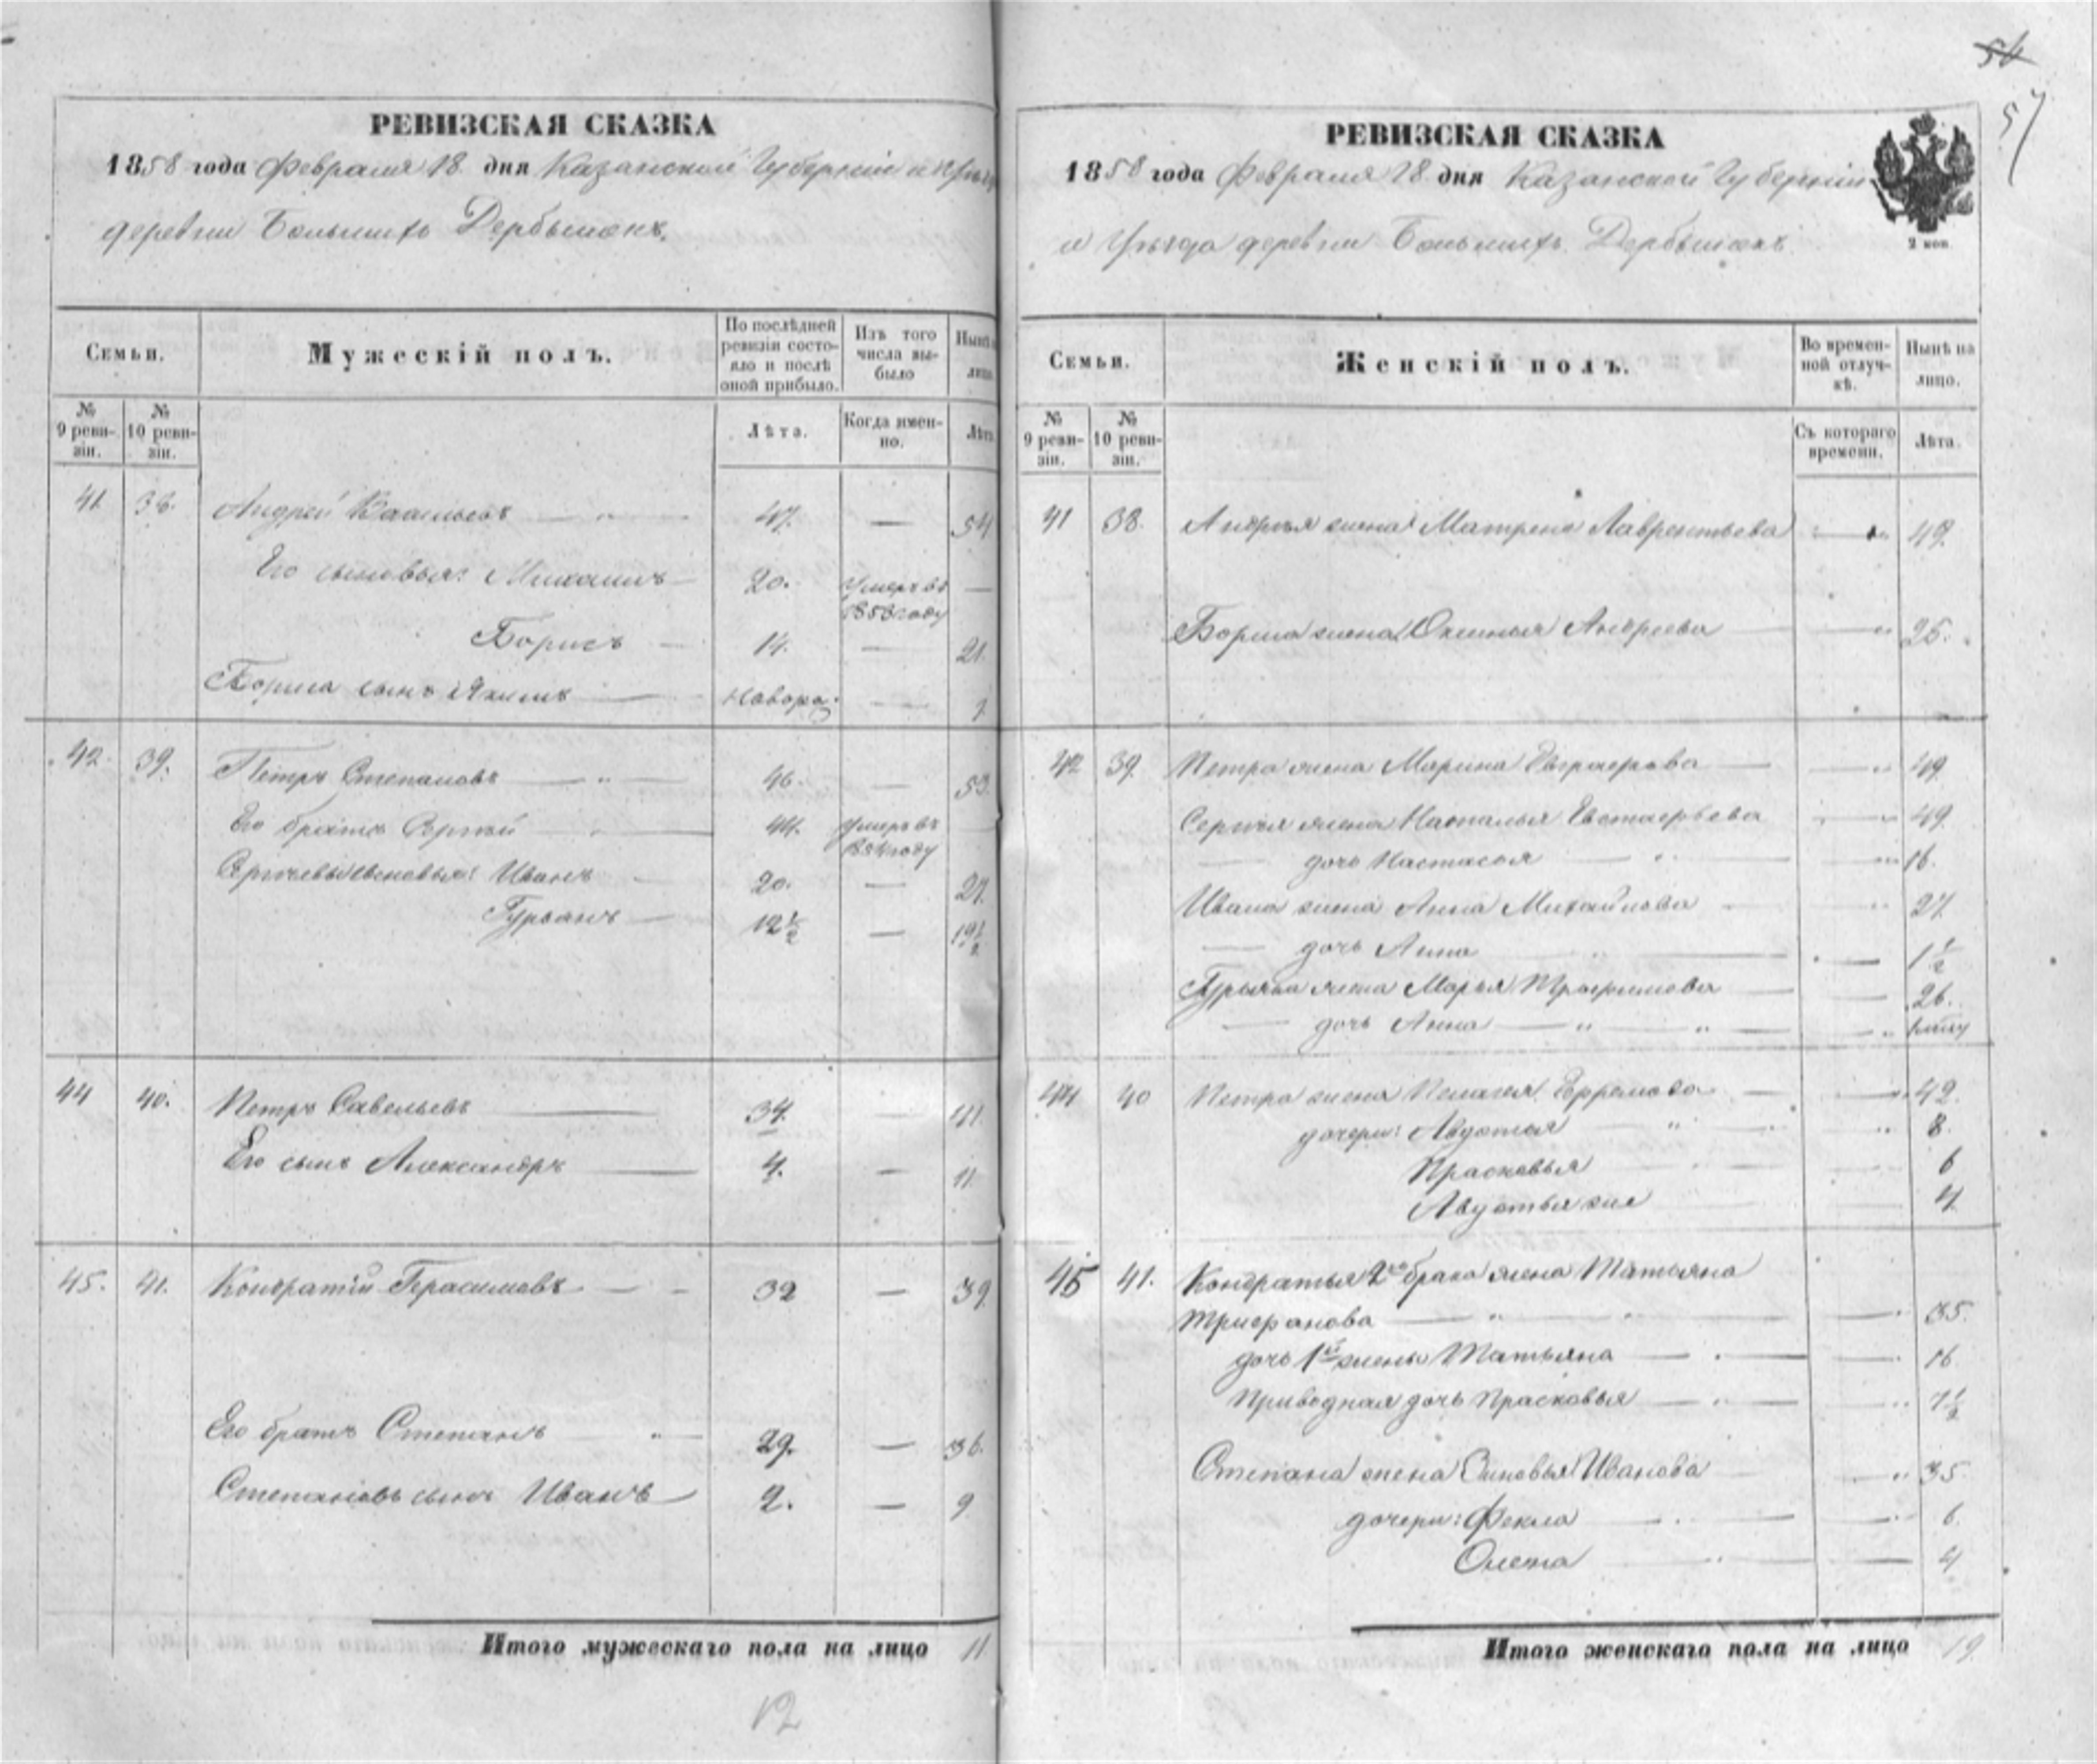 56
57
РЕВИЗСКАЯ СКАЗКА
1858 года Февраля 18 дня Казанской Губерніи и Уѣзда
деревни Большихъ Дербышокъ.
Семьи.
Мужескій полъ.
По послѣдней ревизіи состояло и послѣ оной прибыло.
Изъ того числа выбыло
Нынѣ на лицо.
№ 9 ревизіи.
№ 10 ревизіи.
Лѣта.
Когда именно.
Лѣта
41 38. Андрей Васильевъ — " — 47. — 54
Его сыновья: Михаилъ — 20. Умеръ въ 1853 году —
Борисъ — 14. — 21.
Бориса сынъ Якимъ — новорож. —
42. 39. Петръ Степановъ — " — 46. — 53.
Его братъ Сергѣй — 44. Умеръ въ году
Сергѣевы сыновья: Иванъ — 20. — 27.
Гурьянъ — 12 1/2 — 19 1/2
44 40. Петръ Савельевъ — 34. — 41.
Его сынъ Александръ — 4. — 11
45. 41. Кондратій Герасимовъ — 32 — 39.
Его братъ Степанъ " — 29. — 36.
Степановъ сынъ Иванъ — 2. — 9
Итого мужескаго пола на лицо 11.
12
РЕВИЗСКАЯ СКАЗКА
1858 года Февраля 18 дня Казанской Губерніи
и Уѣзда деревни Большихъ Дербышокъ
2 коп
Семьи.
Женскій полъ.
Во временной отлучкѣ.
Нынѣ на лицо.
№ 9 ревизіи.
№ 10 ревизіи.
Съ котораго времени.
Лѣта.
41 38. Андрея жена Матрена Лаврентьева — 49.
Бориса жена Андреева — " 25.
42 39. Петра жена Марина Евграфова — " 49
Сергѣя жена Наталья Евстафьева — " 49.
— дочь Настасья — " 16.
Ивана жена Анна Михайлова " 27
— дочь Анна — 1 1/2
Гурьяна жена Марья Трофимова — 26.
— дочь Анна — " — " — "
44 40 Петра жена Пелагея Ефремова — 42.
дочери: Авдотья — " — " 8.
Прасковья 6
Авдотья же 4.
45 41. Кондратья 2го брака жена Татьяна
Трифонова — " — 35.
дочь 1ой жены Татьяна — " — 16
Приводная дочь Прасковья — " — " 7 1/2
Степана жена Зиновья Иванова — " 35
дочери: Фекла — 6.
Олена " — 4
Итого женскаго пола на лицо 19